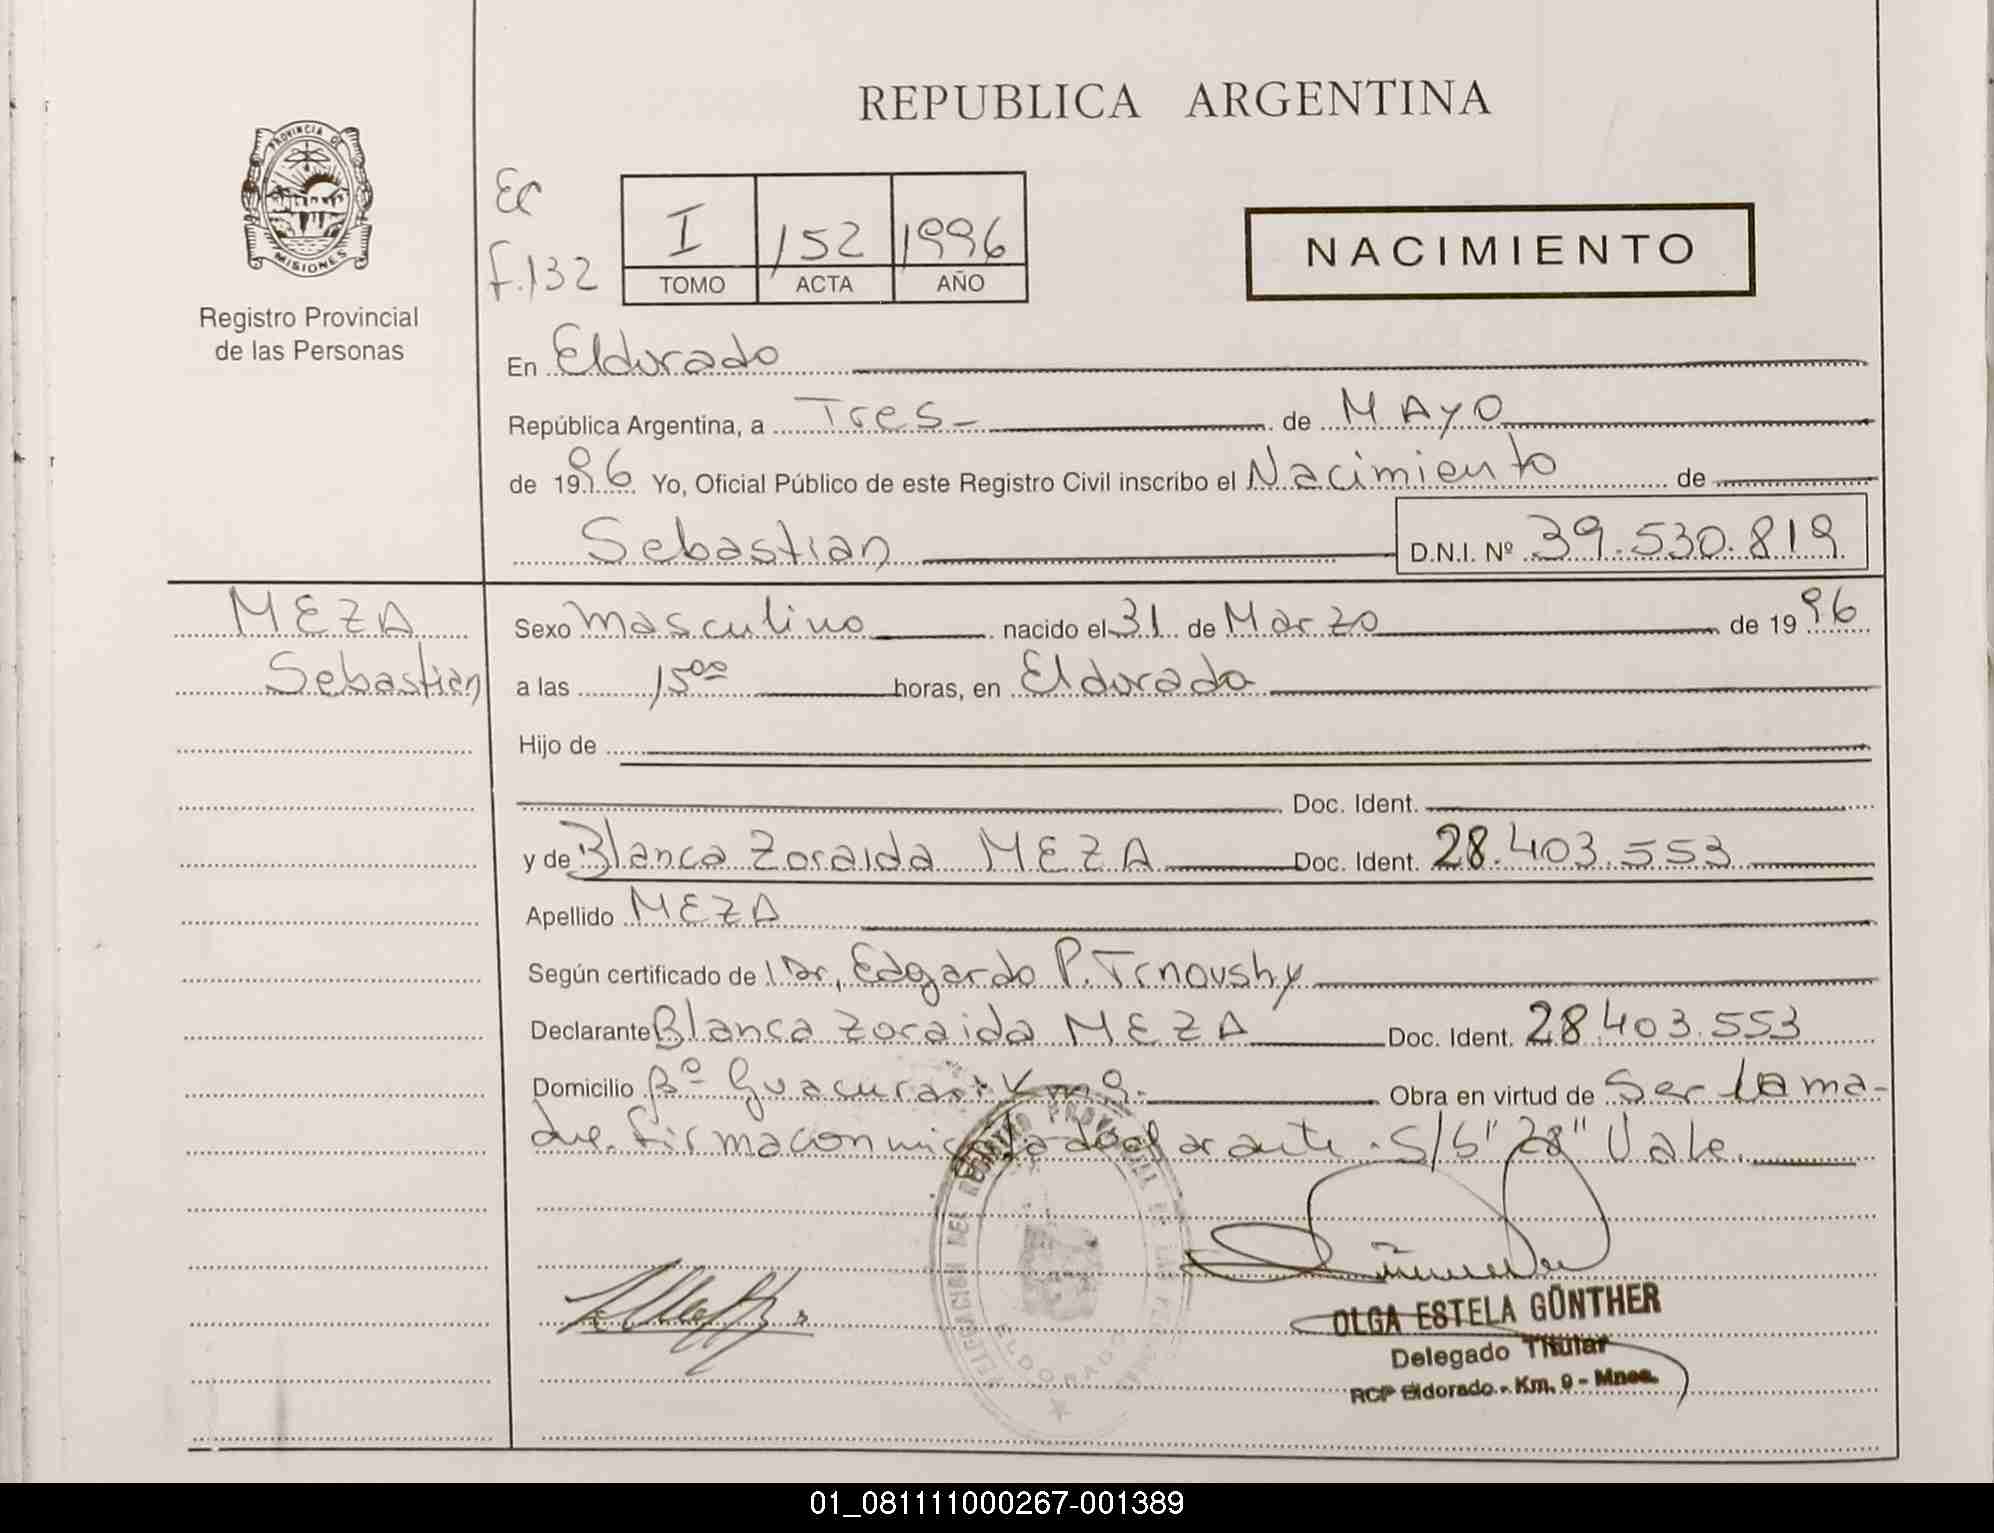 REPUBLICA ARGENTINA
PROVINCIA DE
MISIONES
Registro Provincial
de las Personas
f.132
I 152 1996
TOMO ACTA AÑO
NACIMIENTO
En Eldorado
República Argentina, a Tres de MAYO
de 1996 Yo, Oficial Público de este Registro Civil inscribo el Nacimiento de
Sebastian D.N.I. Nº 39.530.819
MEZA
Sebastian
Sexo Masculino nacido el 31 de Marzo de 1996
a las 15 00 horas, en Eldorado
Hijo de
Doc. Ident.
y de Blanca Zoraida MEZA Doc. Ident. 28.403.553
Apellido MEZA
Según certificado de Dr, Edgardo P.
Declarante Blanca Zoraida MEZA Doc. Ident. 28.403.553
Domicilio Bº Guacurari Km 9. Obra en virtud de Ser la ma-
dre. firma conmigo la declarante. S/b "28" Vale.
DELEGACION DEL REGISTRO PROVINCIAL DE LAS PERSONAS
ELDORADO
OLGA ESTELA GÜNTHER
Delegado Titular
RCP Eldorado - Km. 9 - Mnes.
01_081111000267-001389